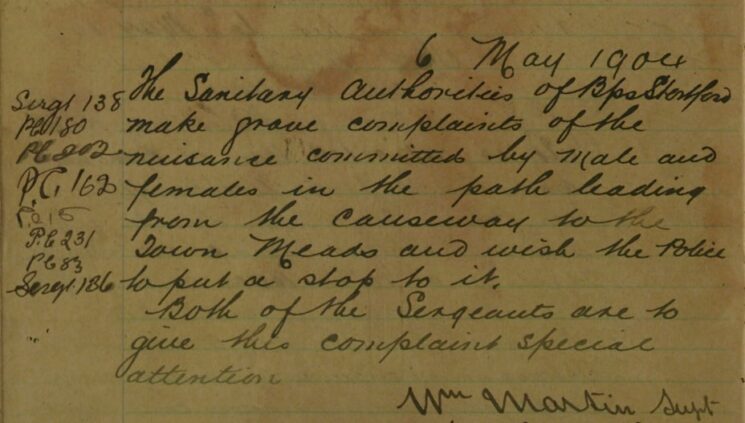 6 May 1904
Sergt 138
The Sanitary Authorities of BpsStortford
PC 180
make grave complaints of the
PC 202
nuisance committed by Male and
P.C. 162
females in the path leading
from the causeway to the
P.C 231
Town Meads and wish the Police
PC 83
Sergt. 136
to put a stop to it.
Both of the Sergeants are to
give this complaint special
attention
Wm Martin Supt